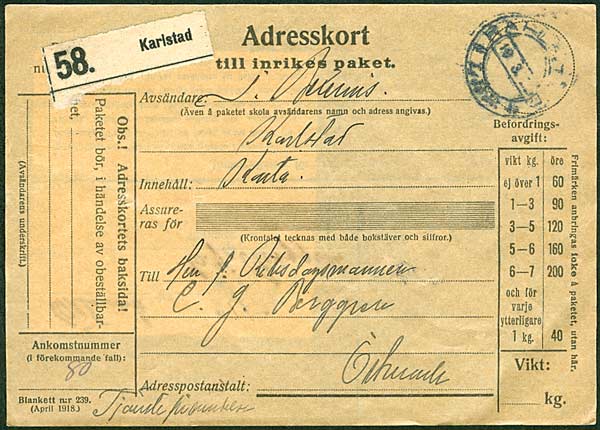 58. Karlstad
Adresskort
till inrikes paket.
Avsändare
(Även å paketet skola avsändarens namn och adress angivas.)
Karlstad
Innehåll: Karta
Assure-
ras för
(Krontalet tecknas med både bokstäver och siffror.)
Till Herr f. Riksdagsmannen
C. J. Berggren
Adresspostanstalt:
Befordrings-
avgift:
vikt kg. öre
ej över 1 60
1—3 90
3—5 120
5—6 160
6—7 200
och för
varje
ytterligare
1 kg. 40
Vikt:
kg.
Frimärken anbringas folks å paketet, utan här.
Obs.! Adresskortets baksida!
Paketet bör, i händelse av obeställbar-
het,
(Avsändarens underskrift.)
Ankomstnummer
(i förekommande fall):
80
Blankett n:r 239.
(April 1918.)